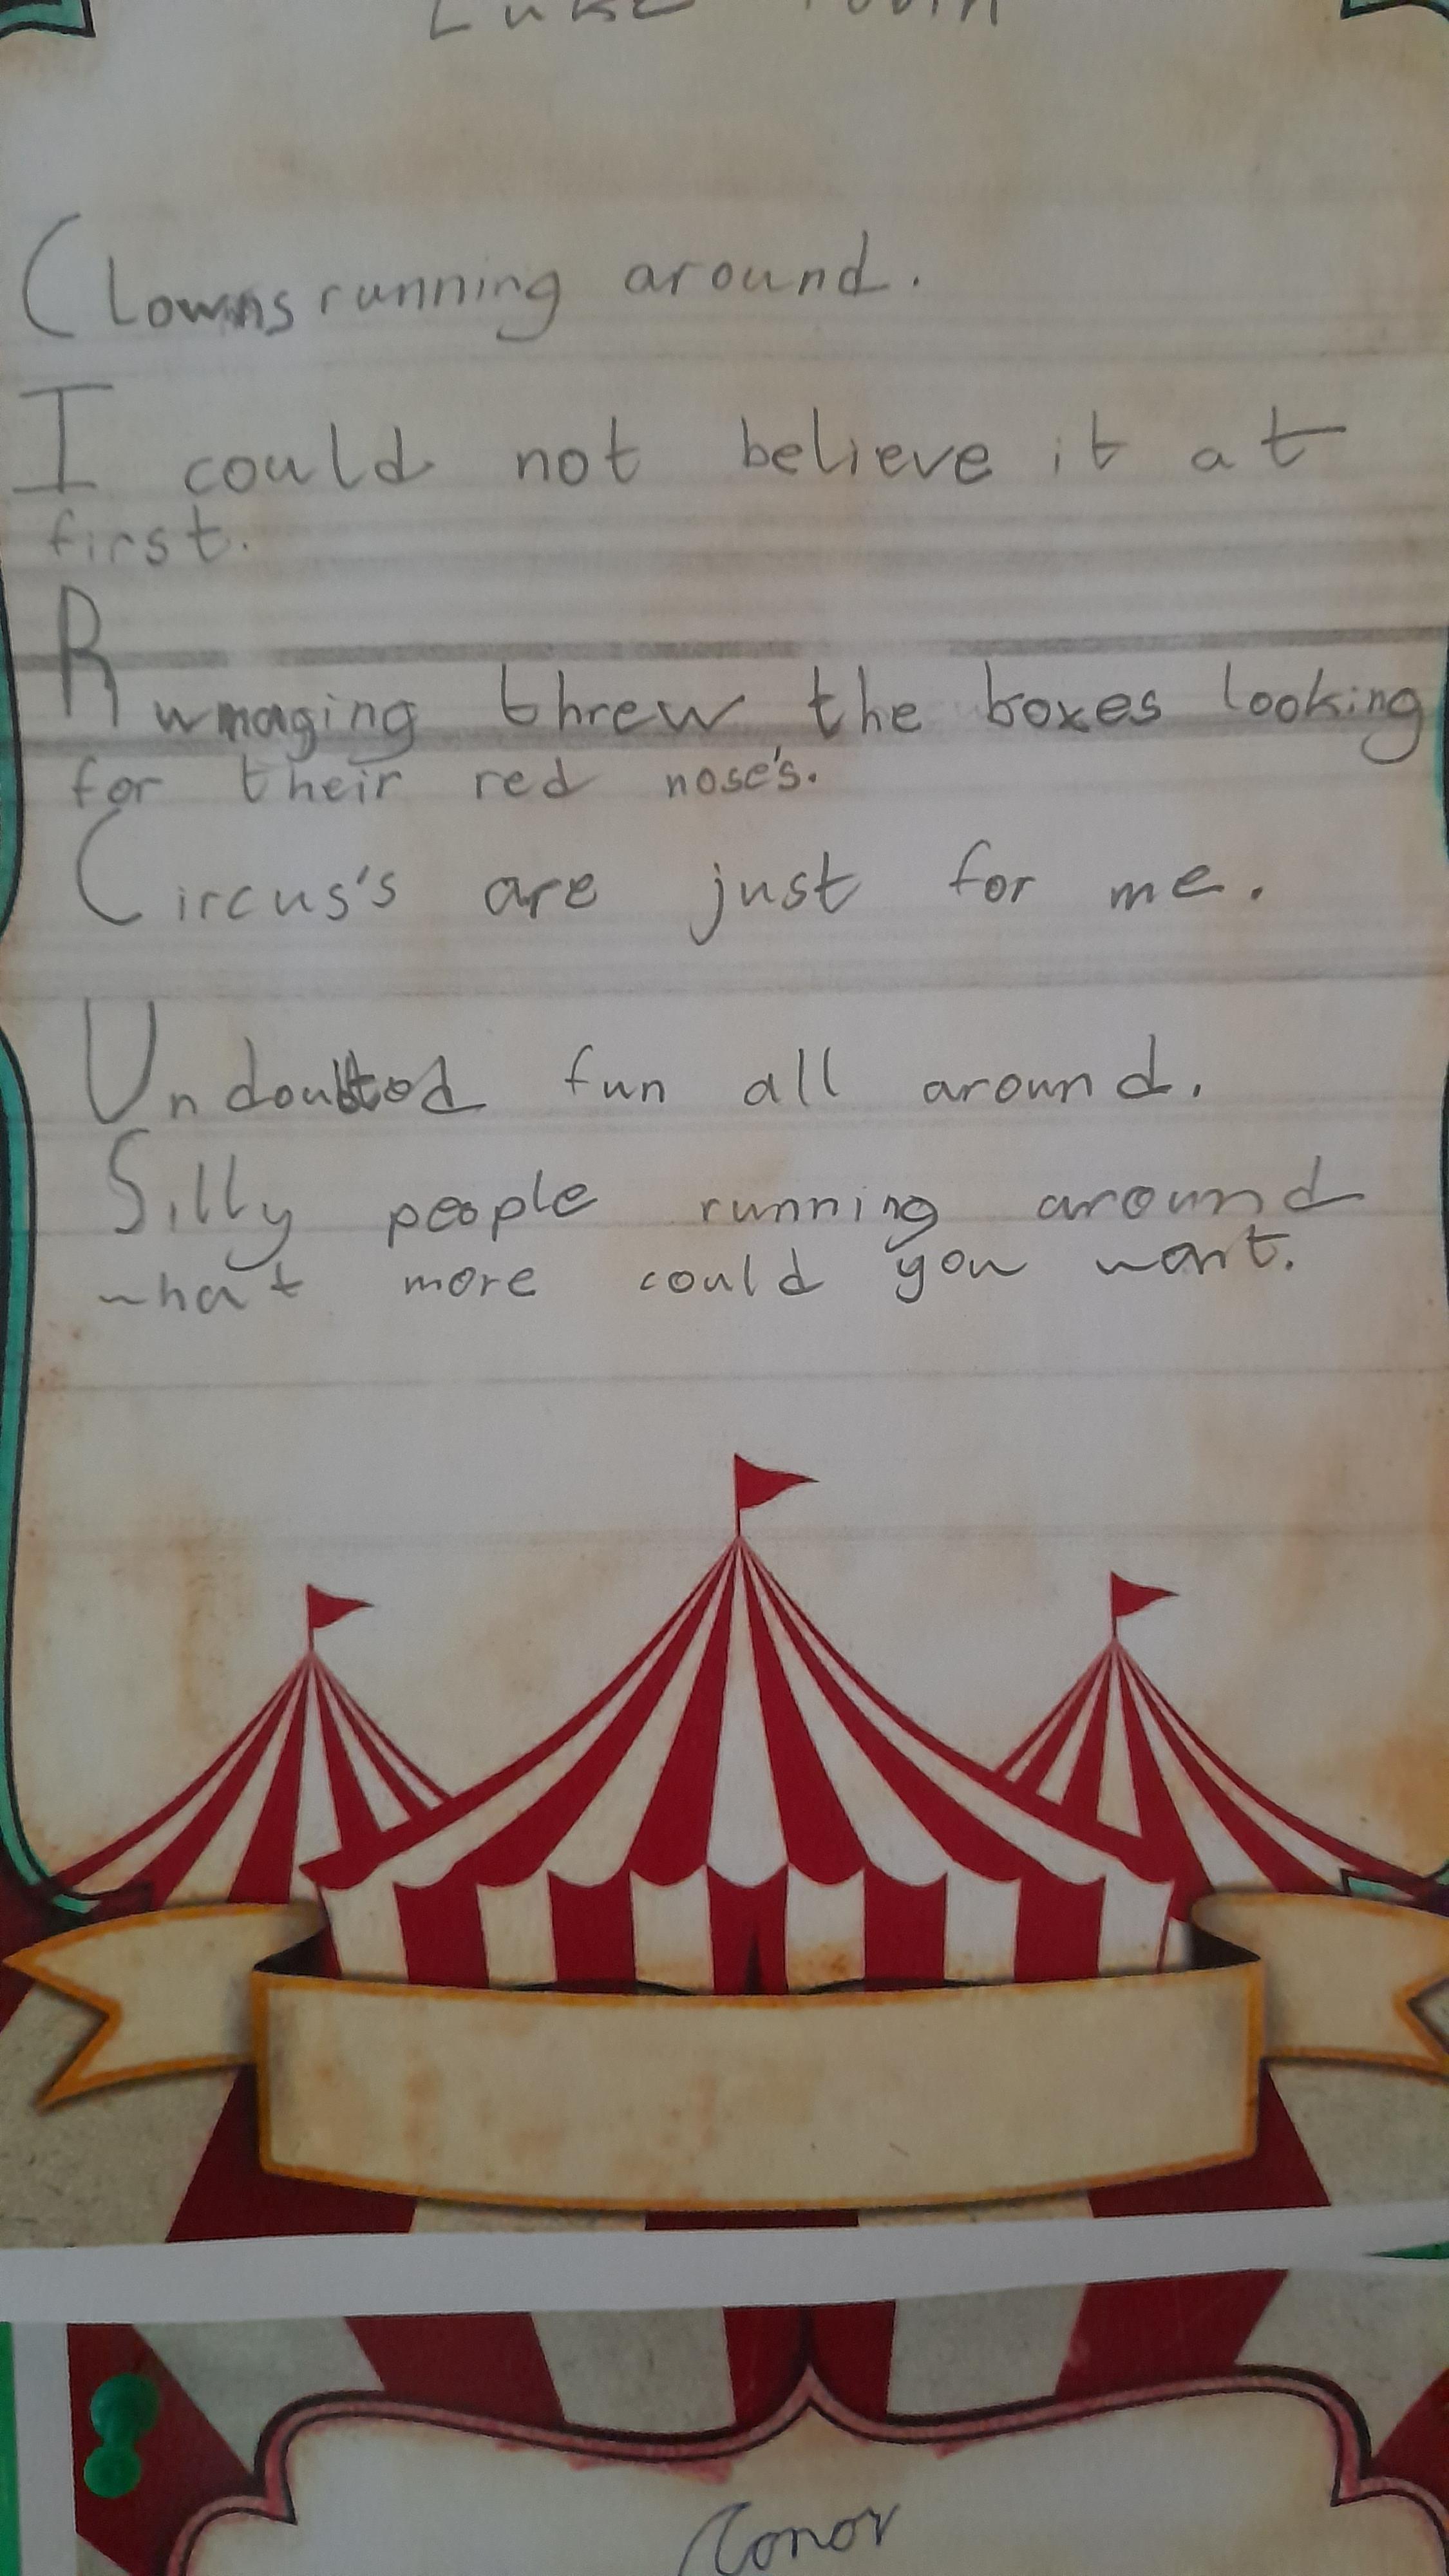 Luke
Clowns running around.
I could not believe it at
first.
Rumaging threw the boxes looking
for their red nose's.
Circus's are just for me.
Undoubted fun all around.
Silly people running around
what more could you want.
Conor